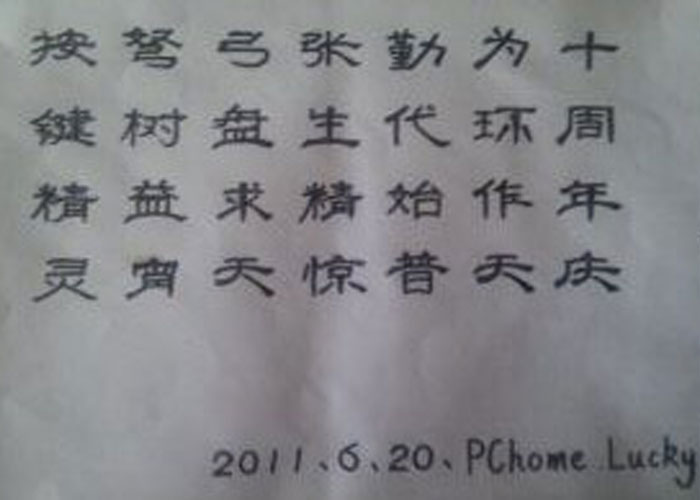 按弩弓张勤为十
键树盘生代环周
精益求精始作年
灵宵天惊普天庆
2011、6、20、PChome Lucky